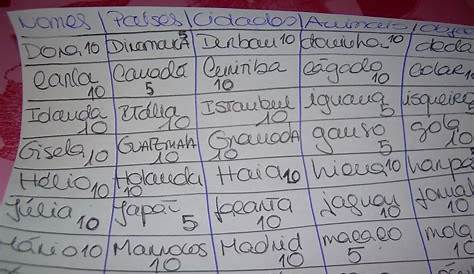 Nomes Países Cidades Animais Obje
Dora 10 Dinamarca 5 Durban 10 doninha 10 deda
Carla 10 Canadá 5 Curitiba 10 Cágado 10 colar
Iolanda 10 Itália 10 Istanbul 10 iguana 5 isqueira
Gisela 10 Guatemala 10 Granada 10 ganso 5 gola 10
Hélio 10 Holanda 10 Haia 10 hiena 10 harpa 5
Júlia 10 Japão 5 Jacarta 10 jaguar 10 10
Mário 10 Marrocos 10 Madrid 10 macaco 5 mola 10